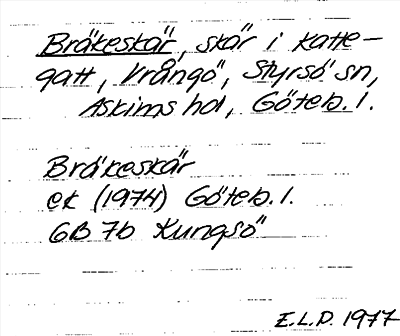 Bräkeskär, skär i Katte-
gatt, Vrångö, Styrsö sn,
Askims hd, Göteb. l.
Bräkeskär
ek (1974) Göteb. l.
6B 7b Kungsö
E.L.D. 1977